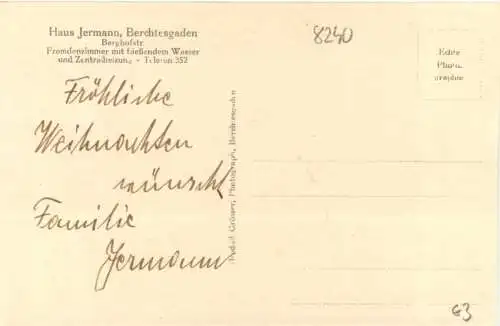 Haus Jermann, Berchtesgaden
Berghofstr.
Fremdenzimmer mit fließendem Wasser
und Zentralheizung - Telefon 352
Fröhliche
Weihnachten
wünscht
Familie
Jermann
Rudolf Gröner, Photograph, Berchtesgaden
8240
Echte
Photo-
graphie
63